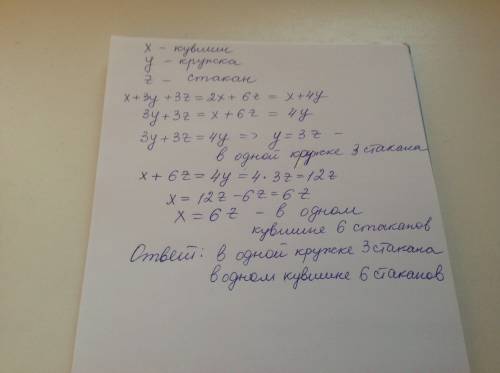 x – кувшин
y – кружка
z – стакан
x+3y+3z=2x+6z = x+4y
3y+3z = x+6z = 4y
3y+3z=4y => y=3z –
в одной кружке 3 стакана
x+6z=4y=4·3z=12z
x=12z-6z=6z
x=6z – в одном
кувшине 6 стаканов
Ответ: в одной кружке 3 стакана
в одном кувшине 6 стаканов